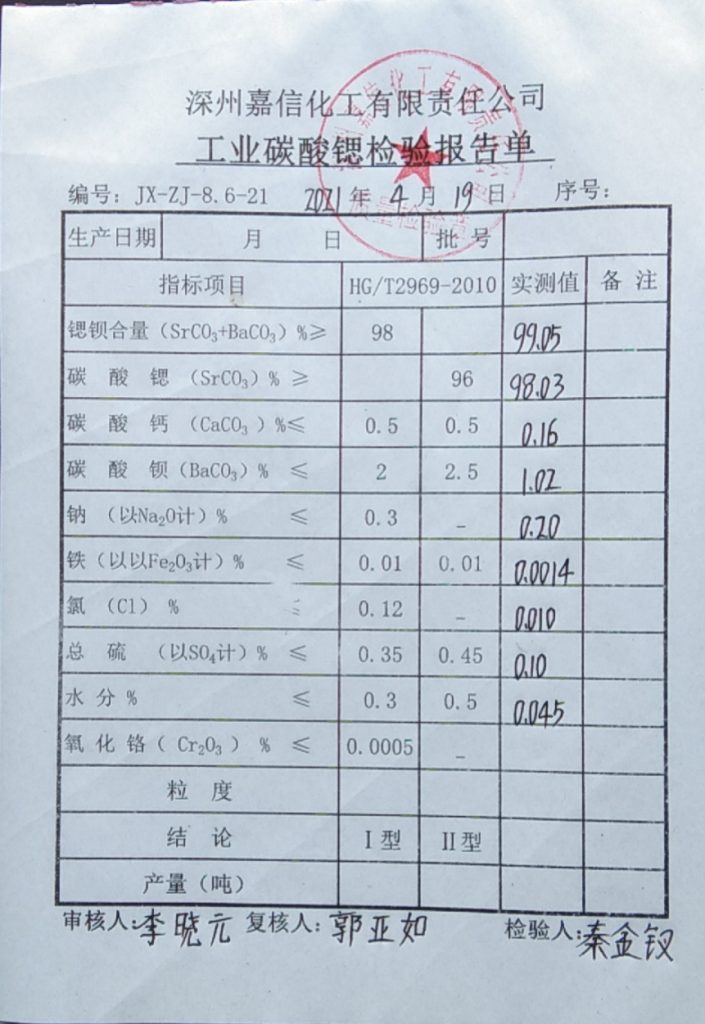 深州嘉信化工有限责任公司
工业碳酸锶检验报告单
编号：JX-ZJ-8.6-21 2021年 4月 19日 序号：
生产日期 月 日 批 号
指标项目 HG/T2969-2010 实测值 备 注
锶钡合量（SrCO₃+BaCO₃）%≥ 98 99.05
碳 酸 锶 （SrCO₃）% ≥ 96 98.03
碳 酸 钙 （CaCO₃ ）%≤ 0.5 0.5 0.16
碳 酸 钡（BaCO₃）% ≤ 2 2.5 1.02
钠 （以Na₂O计）% ≤ 0.3 – 0.20
铁（以以Fe₂O₃计）% ≤ 0.01 0.01 0.0014
氯 （Cl） % ≤ 0.12 – 0.010
总 硫 （以SO₄计）% ≤ 0.35 0.45 0.10
水 分 % ≤ 0.3 0.5 0.045
氧 化 铬（ Cr₂O₃ ） % ≤ 0.0005 –
粒 度
结 论 Ⅰ型 Ⅱ型
产量（吨）
审核人：李晓元 复核人：郭亚如 检验人：秦金钗
质量检验章